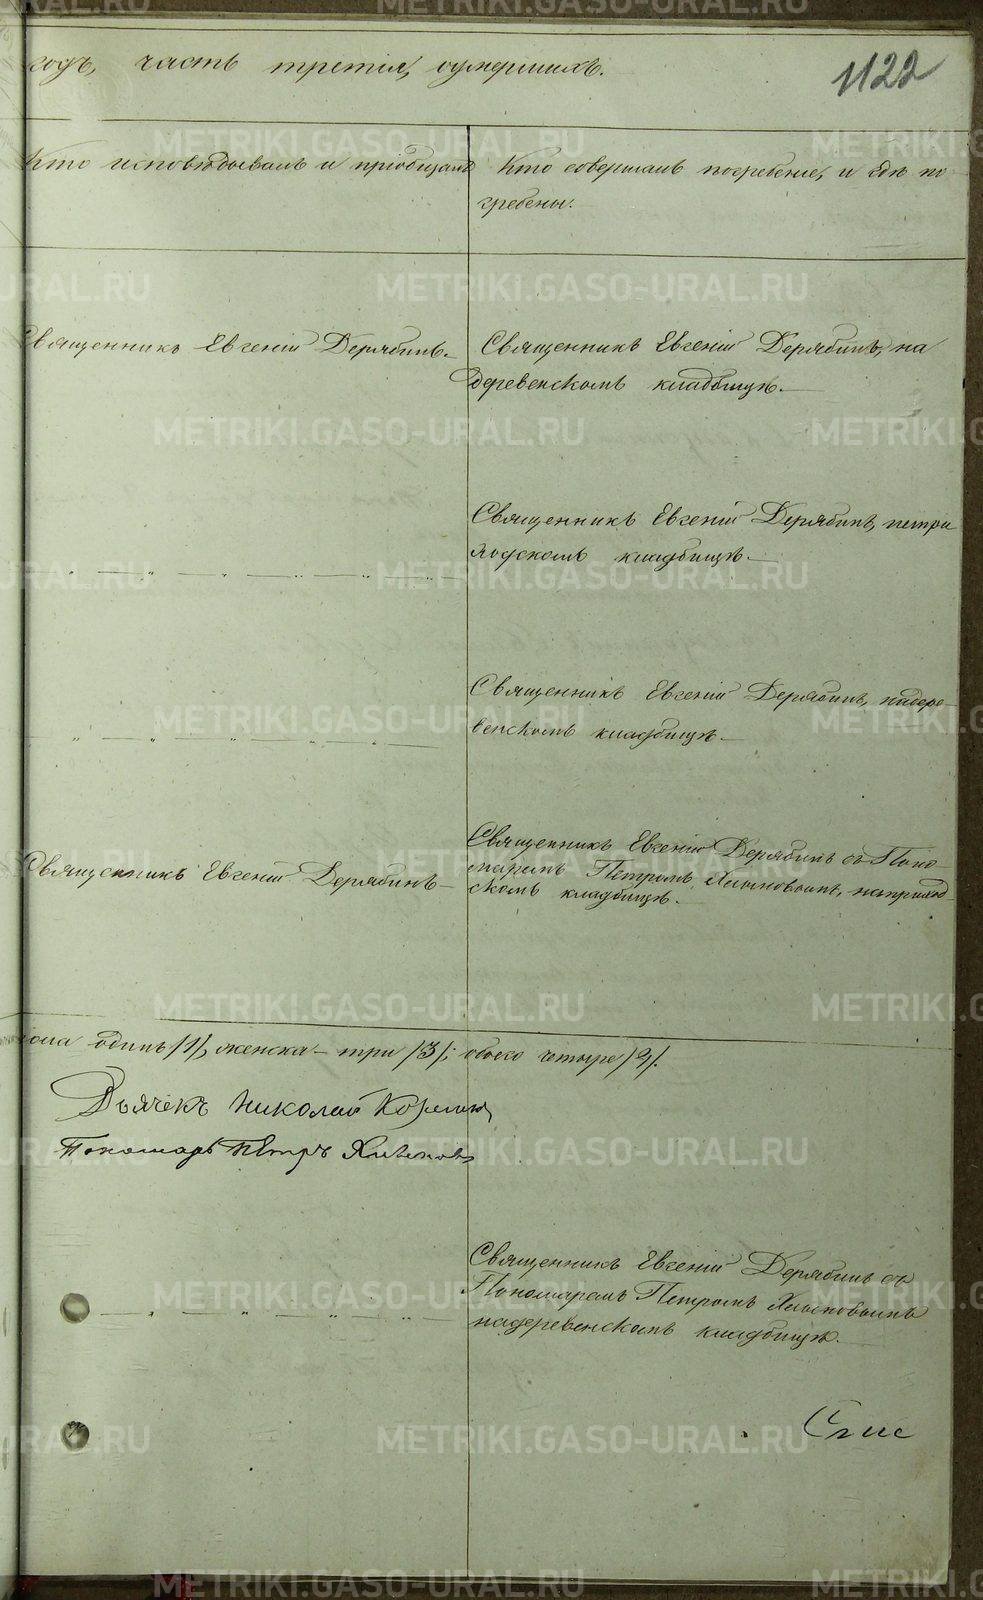 годъ, часть третія, оумершихъ.
1122
Кто исповѣдывалъ и пріобщалъ
Кто совершалъ погребеніе, и гдѣ по
гребены.
Священникъ Евгеній Дерябинъ.
Священникъ Евгеній Дерябинъ, на
деревенскомъ кладбищѣ.
Священникъ Евгеній Дерябинъ,
кладбищѣ.
Священникъ Евгеній Дерябинъ, надере-
венскомъ кладбищѣ.
Священникъ Евгеній Дерябинъ
Священникъ Евгеній Дерябинъ съ Поно-
маремъ Петромъ Хлыновымъ, наприход-
скомъ кладбищѣ.
одинъ /1/, женска - три /3/; обоего четыре /4/.
Дьячекъ Николай
Пономарь Петръ Хлыновъ
Священникъ Евгеній Дерябинъ съ
Пономаремъ Петромъ Хлыновымъ
надеревенскомъ кладбищѣ.
METRIKI.GASO-URAL.RU